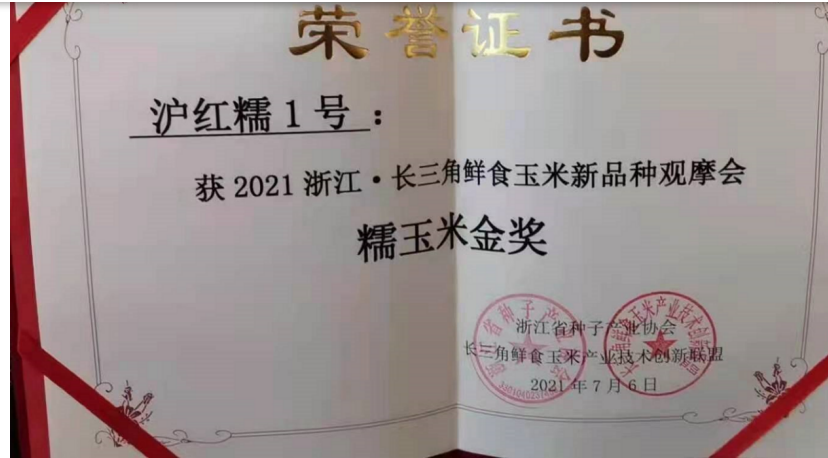 荣誉证书
沪红糯1号：
获2021浙江·长三角鲜食玉米新品种观摩会
糯玉米金奖
浙江省种子产业协会
长三角鲜食玉米产业技术创新联盟
2021年7月6日